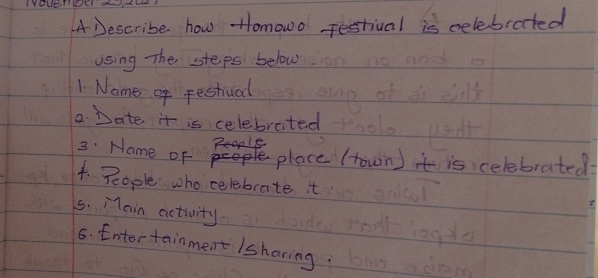 November 25, 2021
A Describe how Homowo festival is celebrated
using the steps below
1. Name of festival
2. Date it is celebrated
3. Name of people place (town) it is celebrated
4. People who celebrate it
5. Main activity
6. Entertainment / sharing.